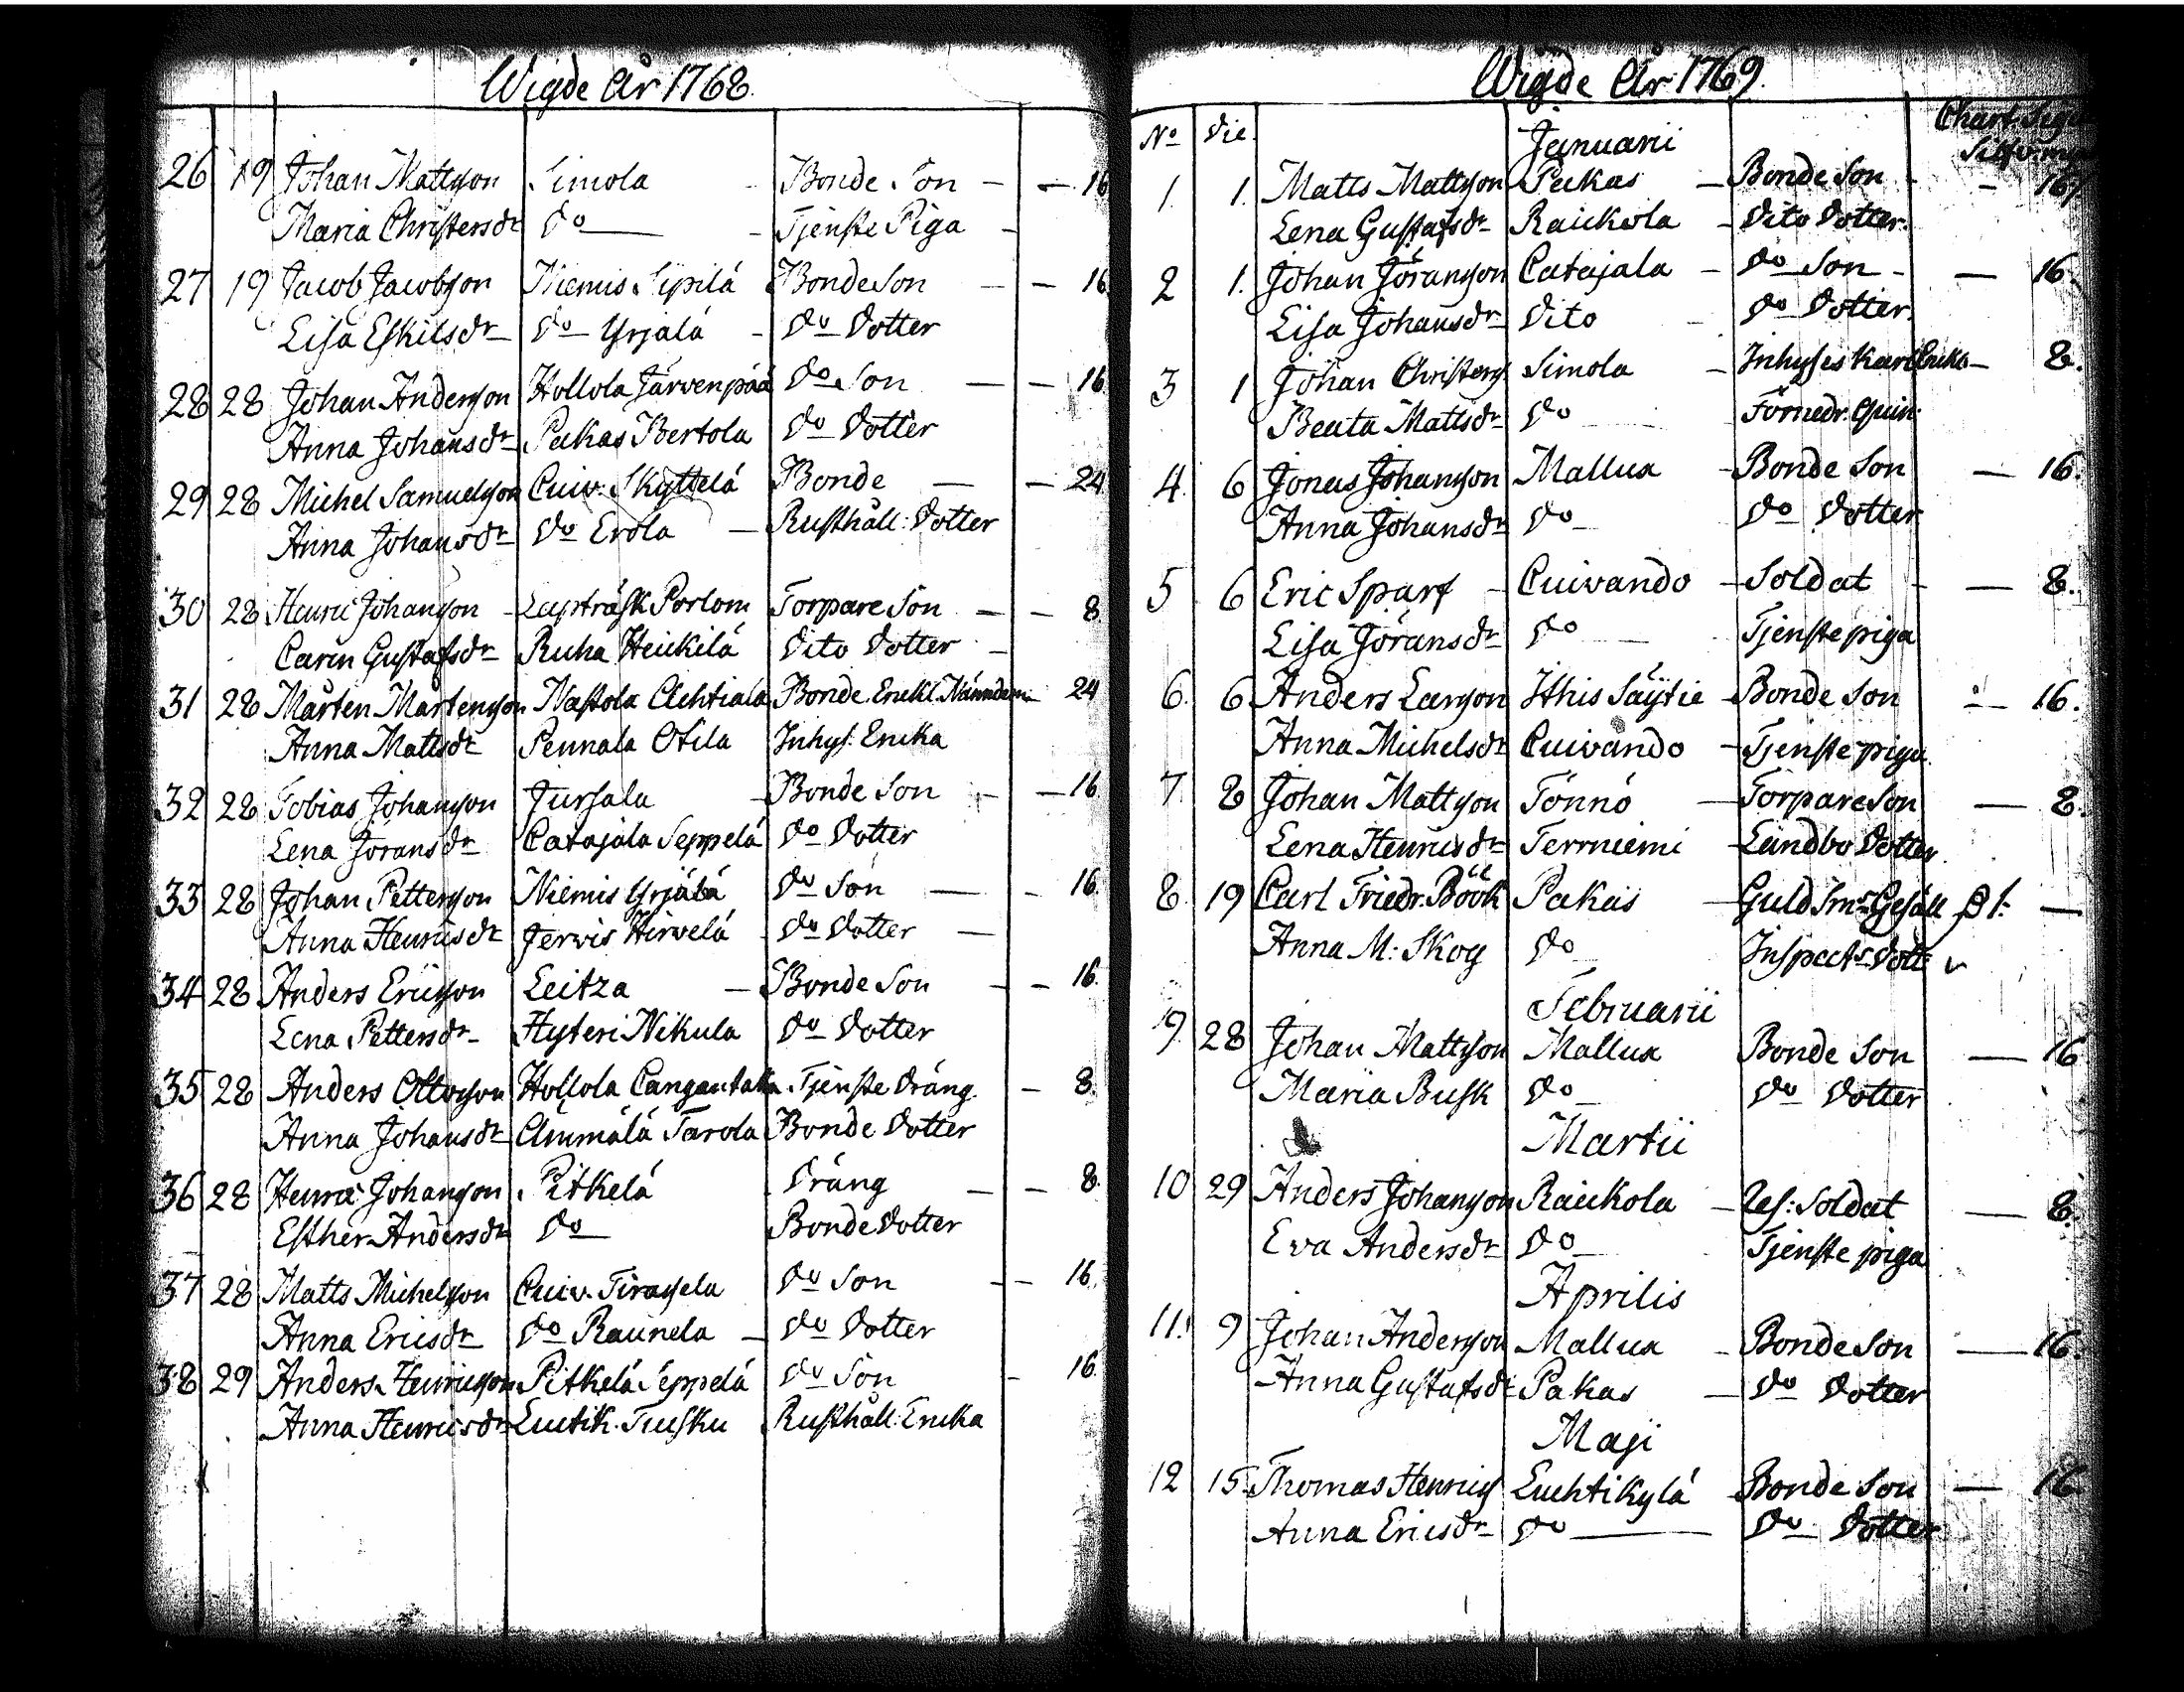 Wigde År 1768.
26 19 Johan Mattsson Simola - Bonde Son - - 16
Maria Christersdr Do - Tjenste Piga -
27 19 Jacob Jacobsson Niemis Sipilä Bonde Son - - 16
Lisa Eskilsdr Do Yrjälä - Do Dotter
28 28 Johan Andersson Hollola Järvenpää Do Son - - 16
Anna Johansdr Pakas Bertola Do Dotter
29 28 Michel Samuelsson Cuiv. Skyttelä Bonde - - 24
Anna Johansdr Do Erola - Rusthåll: Dotter
30 28 Henric Johansson Lapträsk Porlom Torpare Son - - 8
Carin Gustafsdr Ruha Heickilä Dito Dotter -
31 28 Mårten Mårtensson Nastola Achtiala Bonde Enckl. Nämdem. 24
Anna Mattsdr Pennala Otila Inhys: Encka
32 28 Tobias Johansson Jursala - Bonde Son - - 16
Lena Jöransdr Catajala Seppelä Do Dotter
33 28 Johan Pettersson Niemis Yrjälä Do Son - - 16
Anna Henricsdr Jervis Hirvelä Do Dotter -
34 28 Anders Ericsson Leitza - Bonde Son - - 16.
Lena Pettersdr Hyteri Nikula Do Dotter
35 28 Anders Ottosson Hollola Tjenste Dräng - 8
Anna Johansdr Ammälä Tarola Bonde Dotter
36 28 Henric Johansson Pitkelä Dräng - - 8
Esther Andersdr Do Bonde Dotter
37 28 Matts Michelsson Cuiv. Do Son - - 16.
Anna Ericsdr Do Raunela - Do Dotter
38 29 Anders Henricsson Pitkelä Seppelä Do Son - 16
Anna Henricsdr Luhtik. Rusthåll: Encka
Wigde År 1769.
No Die. Januarii Chart. Sig.
Silfv.
1. 1. Matts Mattsson Pakas - Bonde Son - - 16.
Lena Gustafsdr Raickola - Dito Dotter.
2 1. Johan Jöransson Catajala - Do Son - - 16.
Lisa Johansdr Dito - Do Dotter.
3 1 Johan Christers Simola - Inhyses Karl Encka - 8.
Beata Mattsdr Do Förnedr. Quin:
4. 6 Jonas Johansson Mallua - Bonde Son - 16.
Anna Johansdr Do Do Dotter
5 6 Eric Sparf - Cuivando - Soldat - - 8.
Lisa Jöransdr Do - Tjenste piga
6. 6 Anders Larsson Ithis Säytie - Bonde Son - 16.
Anna Michelsdr Cuivando - Tjenste piga
7 8 Johan Mattsson Tönnö - Torpare Son - 8.
Lena Henricsdr Terrniemi - Landbo Dotter
8. 19 Carl Friedr. Böök Pakas - Guld Sm. Gesäll 1. -
Anna M: Skog Do Inspect. Dott:
Februarii
9. 28 Johan Mattsson Mallua Bonde Son - 16
Maria Busk Do Do Dotter
Martii
10 29 Anders Johansson Raickola - Res: Soldat - 8.
Eva Andersdr Do Tjenste piga
Aprilis
11. 9 Johan Andersson Mallua - Bonde Son - 16.
Anna Gustafsdr Pakas - Do Dotter
Maji
12 15. Thomas Henrics Luchtikylä - Bonde Son - 16.
Anna Ericsdr Do - Do Dotter